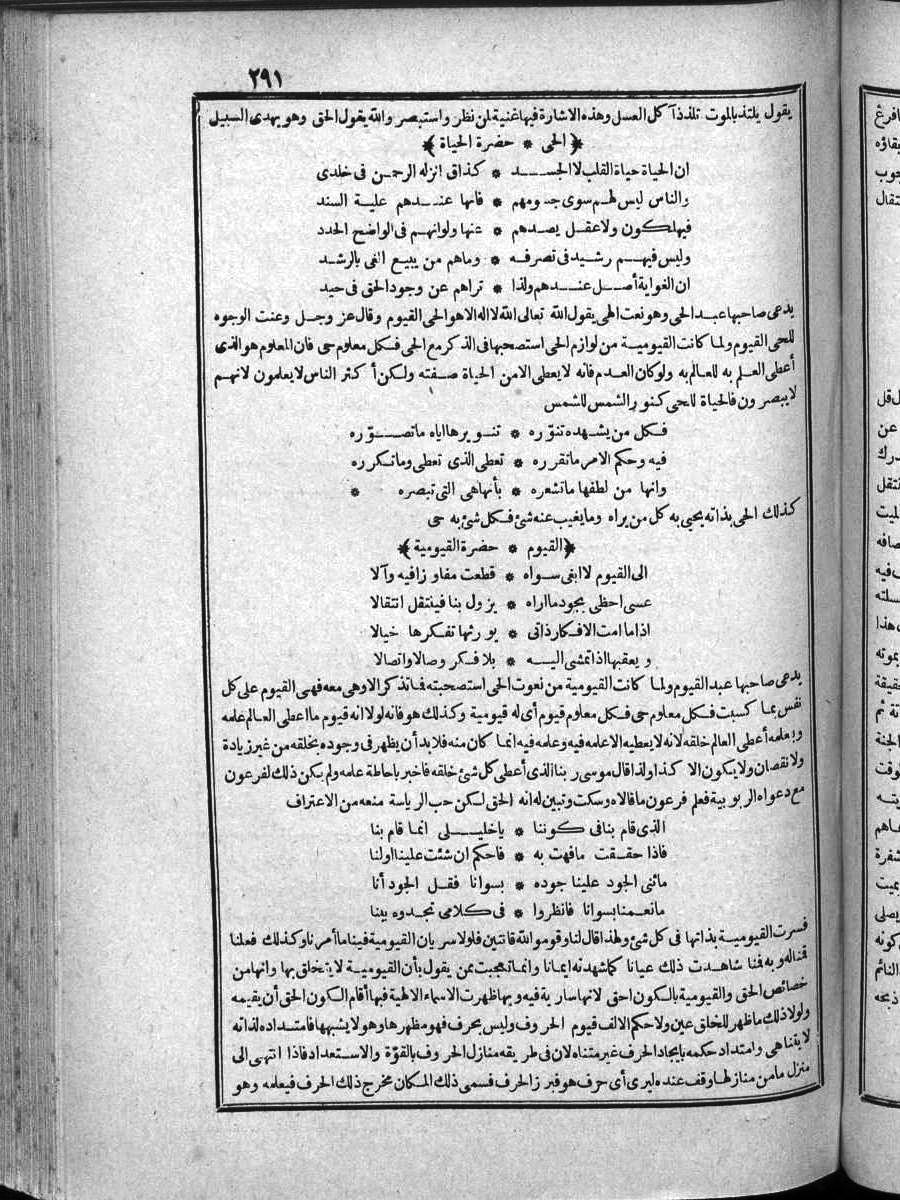 ٢٩١
يقول يلتذ بالموت تلذذ آكل العسل وهذه الاشارة فيها غنية لمن نظر واستبصر والله يقول الحق وهو يهدى السبيل
﴿الحى * حضرة الحياة﴾
ان الحياة حياة القلب لا الجسد * كذاق انزله الرحمن فى خلدى
والناس ليس لهم سوى جسومهم * فانها عندهم علية السند
فيهلكون ولا عقل يصدهم * عنها ولو انهم فى الواضح الجدد
وليس فيهم رشيد فى تصرفه * وما هم من يبيع الغى بالرشد
ان الغواية أصل عندهم ولذا * تراهم عن وجود الحق فى حيد
يدعى صاحبها عبد الحى وهو نعت الهى يقول الله تعالى الله لا اله الا هو الحى القيوم وقال عز وجل وعنت الوجوه
للحى القيوم ولما كانت القيومية من لوازم الحى استصحبها فى الذكر مع الحى فكل معلوم حى فان المعلوم هو الذى
أعطى العلم به للعالم به ولو كان العدم فانه لا يعطى الا من الحياة صفته ولكن أكثر الناس لا يعلمون لانهم
لا يبصرون فالحياة للحى كنور الشمس للشمس
فكل من يشهده تنوره * تنويرها اياه ما تصوره
فيه وحكم الامر ما تقرره * تعطى الذى تعطى وما تكرره
وانها من لطفها ما تشعره * بأنها هى التى تبصره *
كذلك الحى بذاته يحيى به كل من يراه وما يغيب عنه شئ فكل شئ به حى
﴿القيوم * حضرة القيومية﴾
الى القيوم لا ابغى سواه * قطعت مفاوزا فيه وآلا
عسى احظى بجود ما اراه * يزول بنا فينتقل انتقالا
اذا ما امت الافكار ذاتى * يورثها تفكرها خيالا
ويعقبها اذا تمشى اليه * بلا فكر وصالا واتصالا
يدعى صاحبها عبد القيوم ولما كانت القيومية من نعوت الحى استصحبته فما تذكر الا وهى معه فهى القيوم على كل
نفس بما كسبت فكل معلوم حى فكل معلوم قيوم أى له قيومية وكذلك هو فانه لولا انه قيوم ما اعطى العالم علمه
وبعلمه أعطى العالم خلقه لانه لا يعطيه الا علمه فيه وعلمه فيه انما كان منه فلا بد أن يظهر فى وجوده بخلقه من غير زيادة
ولا نقصان ولا يكون الا كذا ولذا قال موسى ربنا الذى أعطى كل شئ خلقه فاخبر باحاطة علمه ولم يكن ذلك لفرعون
مع دعواه الربوبية فعلم فرعون ما قالاه وسكت وتبين له انه الحق لكن حب الرياسة منعه من الاعتراف
الذى قام بنا فى كوننا * يا خليلى انما قام بنا
فاذا حققت ما فهت به * فاحكم ان شئت علينا او لنا
ما ثنى الجود علينا جوده * بسوانا فقل الجود أنا
ما نعمنا بسوانا فانظروا * فى كلامى تجدوه بينا
فسرت القيومية بذاتها فى كل شئ ولهذا قال لنا وقوموا لله قانتين فلولا سريان القيومية فينا ما أمرنا وكذلك فعلنا
قمنا له وبه فمنا شاهدت ذلك عيانا كما شهدته ايمانا وانما تعجبت ممن يقول بأن القيومية لا يتخلق بها وانها من
خصائص الحق والقيومية بالكون احق لانها سارية فيه وبها ظهرت الاسماء الالهية فبها أقام الكون الحق أن يقيمه
ولولا ذلك ما ظهر للخلق عين ولا حكم الالف قيوم الحروف وليس بحرف فهو مظهرها وهو لا يشبهها فامتداده لذاته
لا يتناهى وامتداد حكمه بايجاد الحرف غير متناه لان فى طريقه منازل الحروف بالقوة والاستعداد فاذا انتهى الى
منزل ما من منازلها وقف عنده ليرى أى حرف هو فبرز الحرف فسمى ذلك المكان مخرج ذلك الحرف فيعلمه وهو